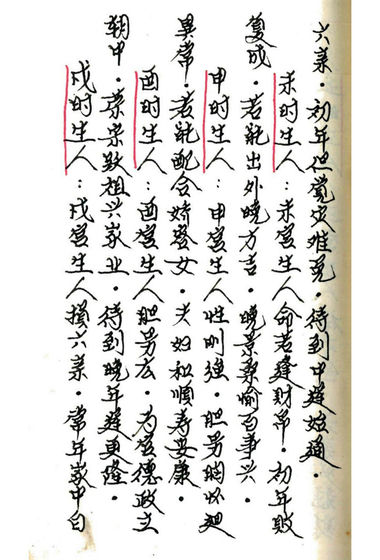 六亲．初年但觉灾难免．待到中造始通．
未时生人：未宫生人命若逢财帛．初年败
复成．若能出外晓方吉．晚景桑榆百事兴．
申时生人：申宫生人性刚强．胆男胸怀迥
異常．若能配合娇登女．夫妇和顺寿安康．
酉时生人：酉宫生人胆男玄．为宫德政立
朝中．荣宗敬祖兴家业．待到晚年造更隆．
戌时生人：戌宫生人损六亲．常年家中白